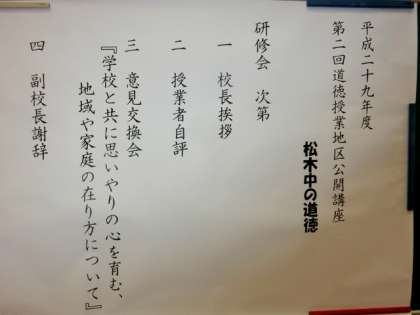 平成二十九年度
第二回道徳授業地区公開講座
松木中の道徳
研修会　次第
一　校長挨拶
二　授業者自評
三　意見交換会
『学校と共に思いやりの心を育む、
地域や家庭の在り方について』
四　副校長謝辞